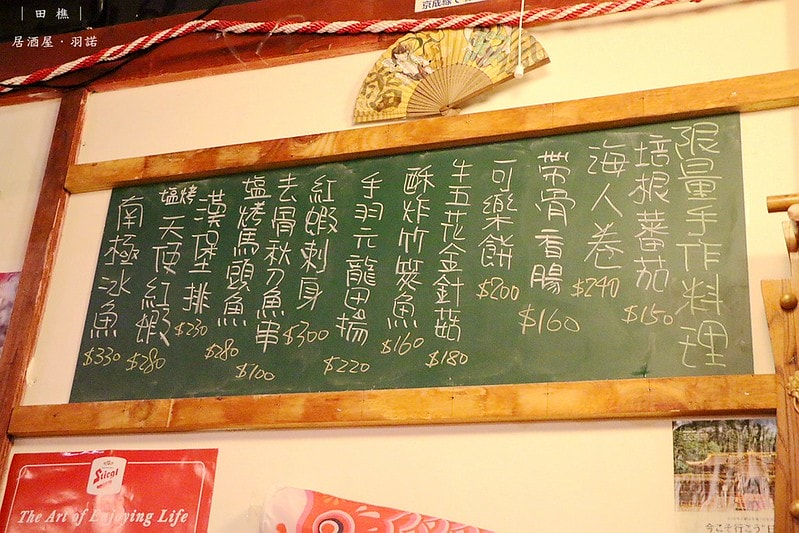 ｜田樵｜
居酒屋‧羽諾
限量手作料理
培根蕃茄 $150
海人卷 $240
帶骨香腸 $160
可樂餅 $200
牛五花金針菇 $180
酥炸竹筴魚 $160
手羽元龍田揚 $220
紅蝦刺身 $300
去骨秋刀魚串 $100
塩烤馬頭魚 $280
漢堡排 $230
塩烤天使紅蝦 $280
南極冰魚 $330
Stiegl
The Art of Enjoying Life
今こそ行こう"日